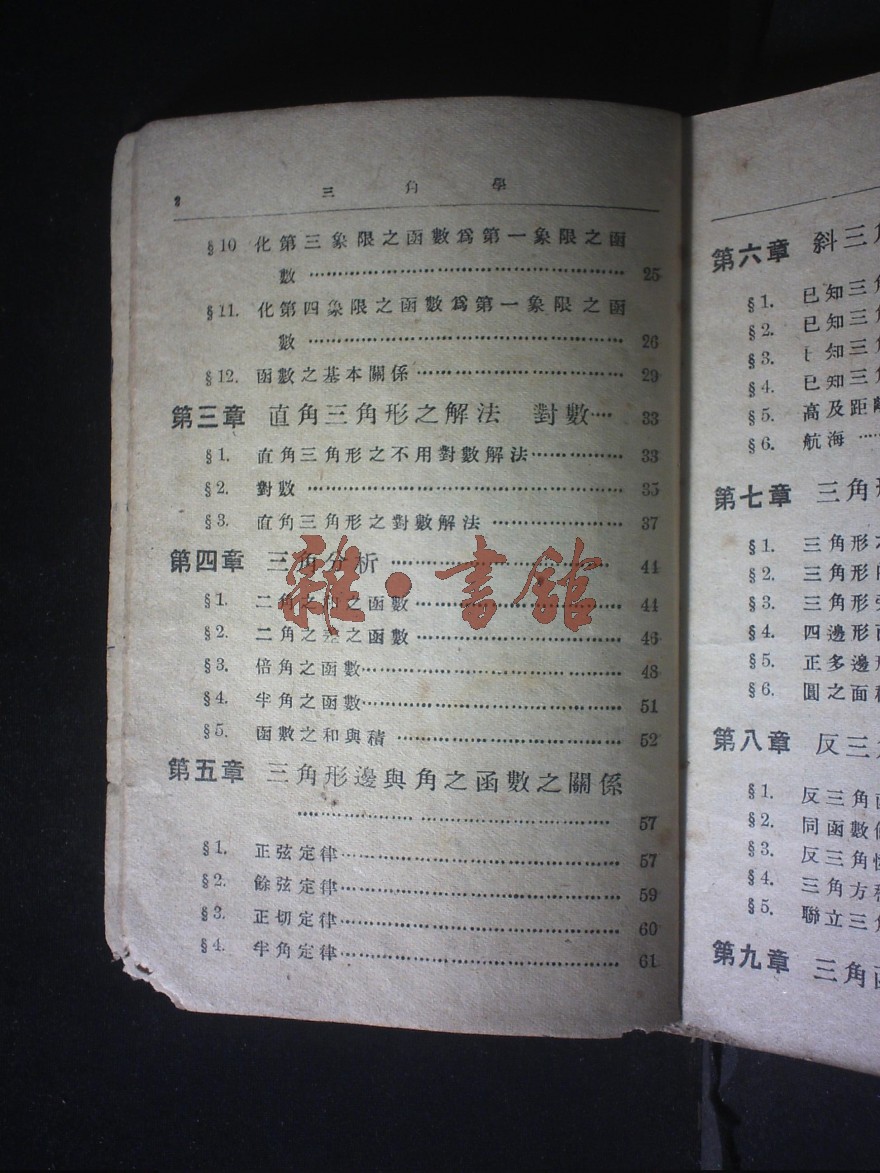 2 三角學
§10 化第三象限之函數爲第一象限之函
數 …… 25
§11. 化第四象限之函數爲第一象限之函
數 …… 26
§12. 函數之基本關係 …… 29
第三章 直角三角形之解法 對數 …… 33
§1. 直角三角形之不用對數解法 …… 33
§2. 對數 …… 35
§3. 直角三角形之對數解法 …… 37
第四章 三角分析 …… 44
§1. 二角之和之函數 …… 44
§2. 二角之差之函數 …… 46
§3. 倍角之函數 …… 48
§4. 半角之函數 …… 51
§5. 函數之和與積 …… 52
第五章 三角形邊與角之函數之關係
…… 57
§1. 正弦定律 …… 57
§2. 餘弦定律 …… 59
§3. 正切定律 …… 60
§4. 半角定律 …… 61
雜·書館
第六章 斜三角
§1. 已知三角
§2. 已知三角
§3. 已知三角
§4. 已知三角
§5. 高及距離
§6. 航海 ……
第七章 三角形
§1. 三角形
§2. 三角形
§3. 三角形
§4. 四邊形面
§5. 正多邊形
§6. 圓之面積
第八章 反三角
§1. 反三角函
§2. 同函數
§3. 反三角
§4. 三角方程
§5. 聯立三角
第九章 三角函